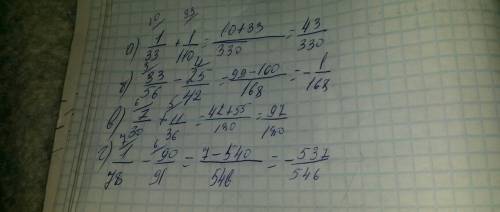 10/ 33/
а) 1/33 + 1/110 = 10+33/330 = 43/330
3/ 4/
б) 33/56 - 25/42 = 99-100/168 = -1/168
6/ 5/
в) 7/30 + 11/36 = 42+55/180 = 97/180
7/ 6/
г) 1/78 - 90/91 = 7-540/546 = -537/546